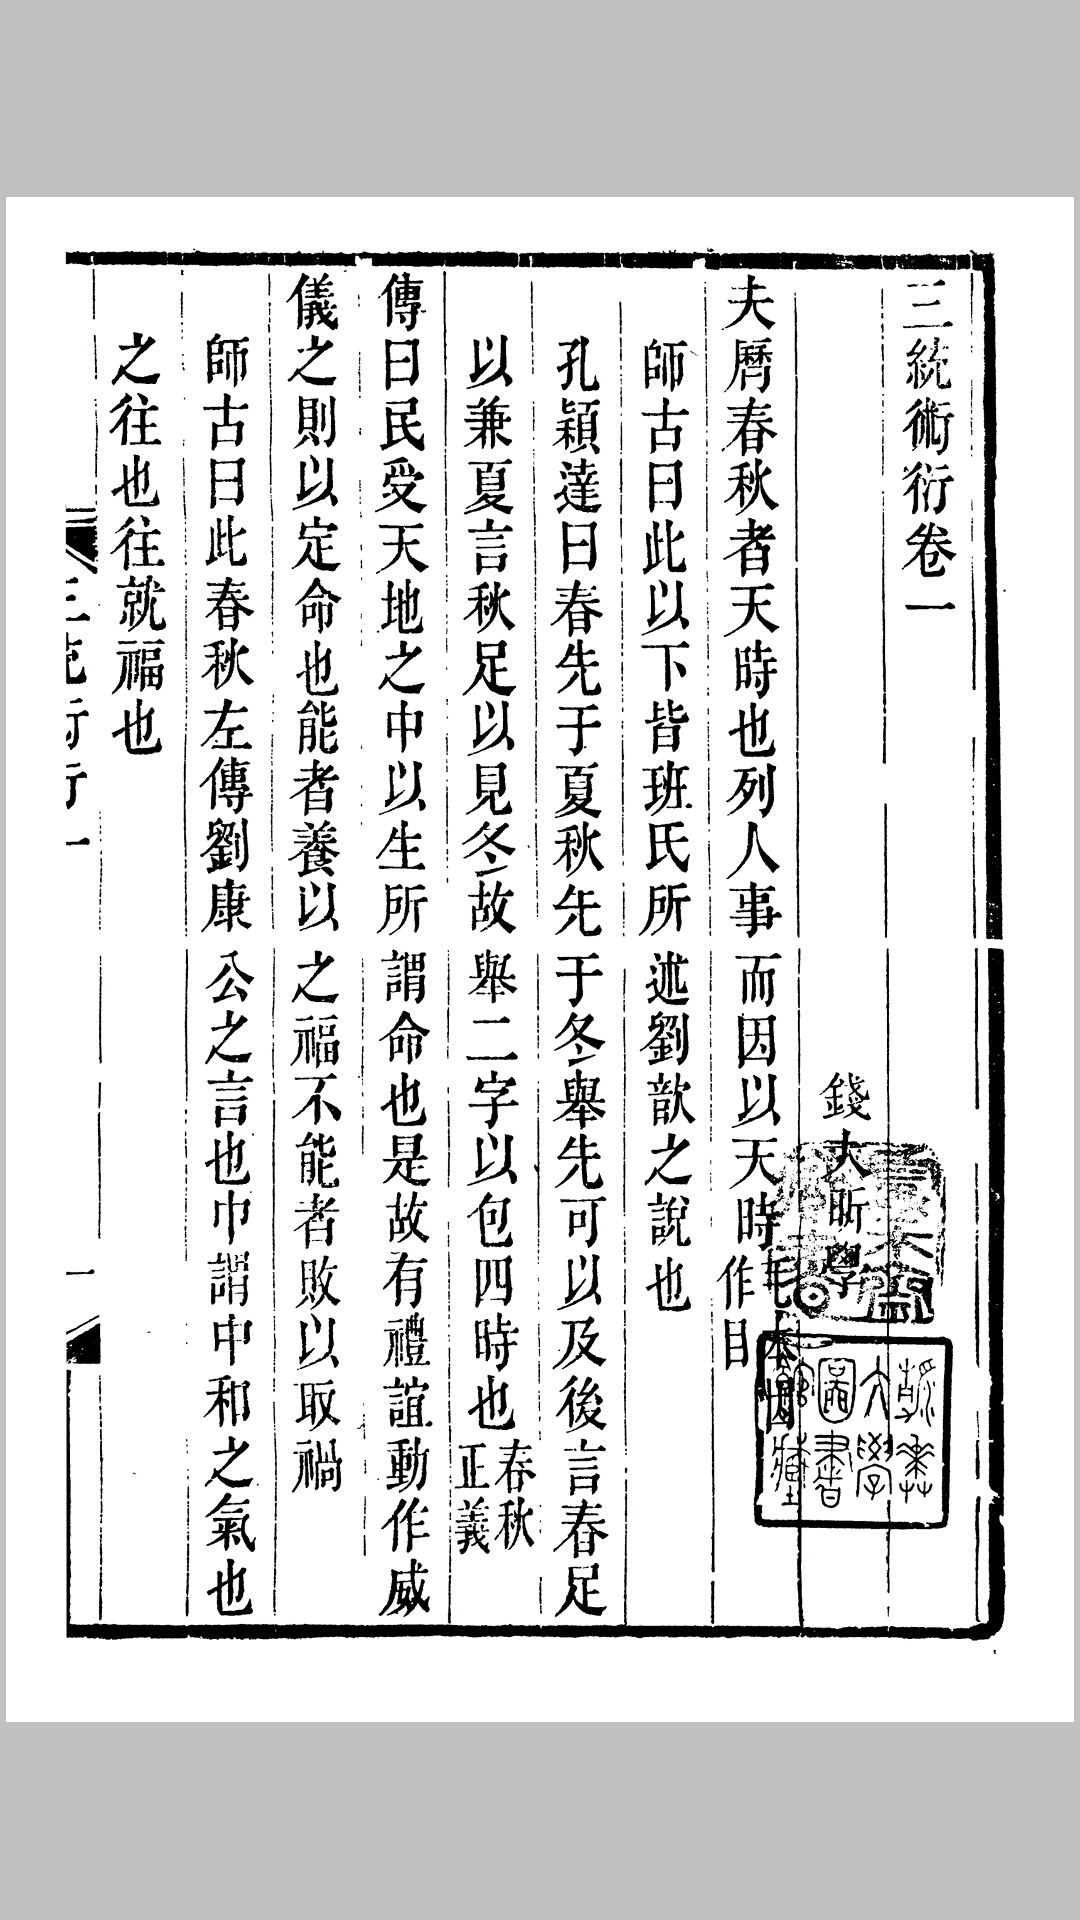 三統術衍卷一
錢大昕學
夫曆春秋者天時也列人事而因以天時毛本因作目
師古曰此以下皆班氏所述劉歆之說也
孔穎達曰春先于夏秋先于冬舉先可以及後言春足
以兼夏言秋足以見冬故舉二字以包四時也春秋正義
傳曰民受天地之中以生所謂命也是故有禮誼動作威
儀之則以定命也能者養以之福不能者敗以取禍
師古曰此春秋左傳劉康公之言也中謂中和之氣也
之往也往就福也
三統術衍一
一
燕京大學圖書館藏